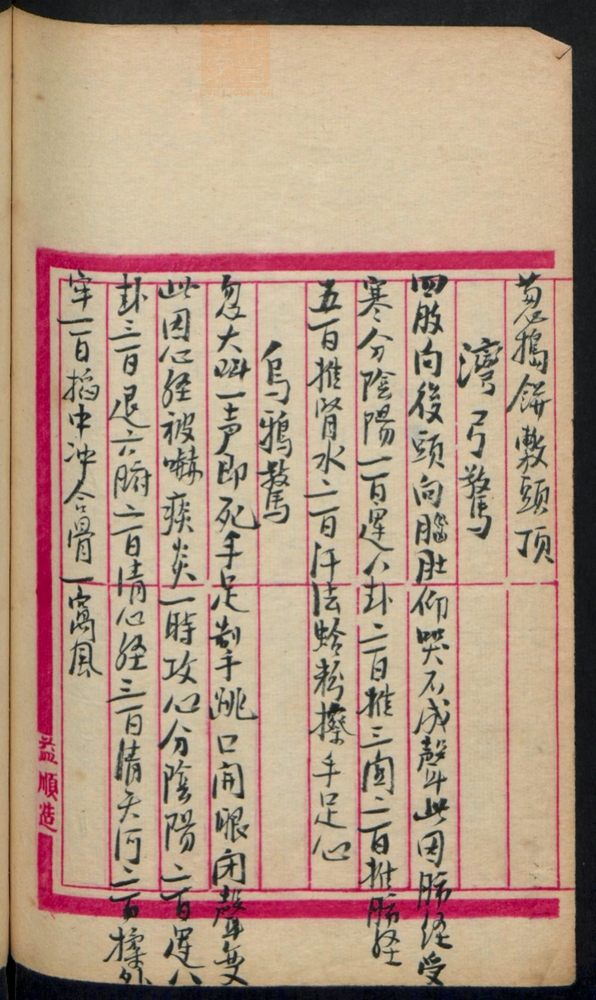 葱搗餅敷頭頂
灣弓驚
四肢向後頭向腦肚仰哭不成聲此因肺经受
寒分陰陽一百運八卦二百推三関二百推肺经
五百推腎水二百汗法蛤粉擦手足心
烏鴉驚
忽大叫一声即死手足制手跳口開眼闭聲变
此因心经被嚇痰炎一時攻心分陰陽二百運八
卦三百退六腑二百清心经三百清天河二百揉外
牢一百掐中冲合骨一窩風
益順造